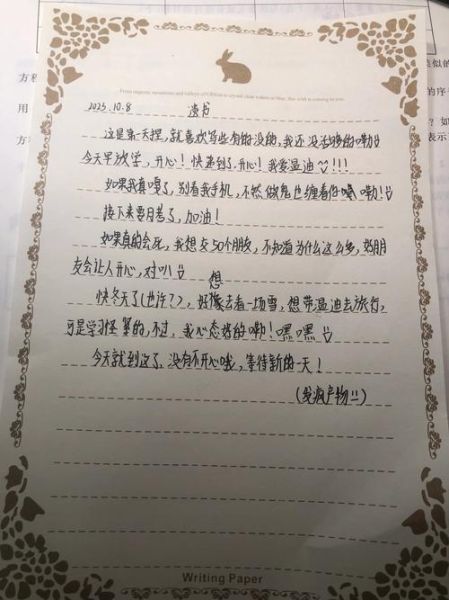 2025.10.8 遗书
这是第一天捏,就喜欢写些有的没的,我还没活够的嘞
今天早放学,开心!快来到了,开心!我爱温迪!!!
如果我真嘎了,别看我手机,不然做鬼也缠着你嘿 嘞!
接下来要月考了,加油!
如果真的会死,我想交50个朋友,不知道为什么这么多,好朋
友会让人开心,对叭
想
快冬天了(也许?),好想去看一场雪,想带温迪去旅行,
可是学习怪累的,不过,我心态好的嘞!嘿嘿
今天就到这了,没有不开心哦,等待新的一天!
(发疯产物!!)
Writing Paper